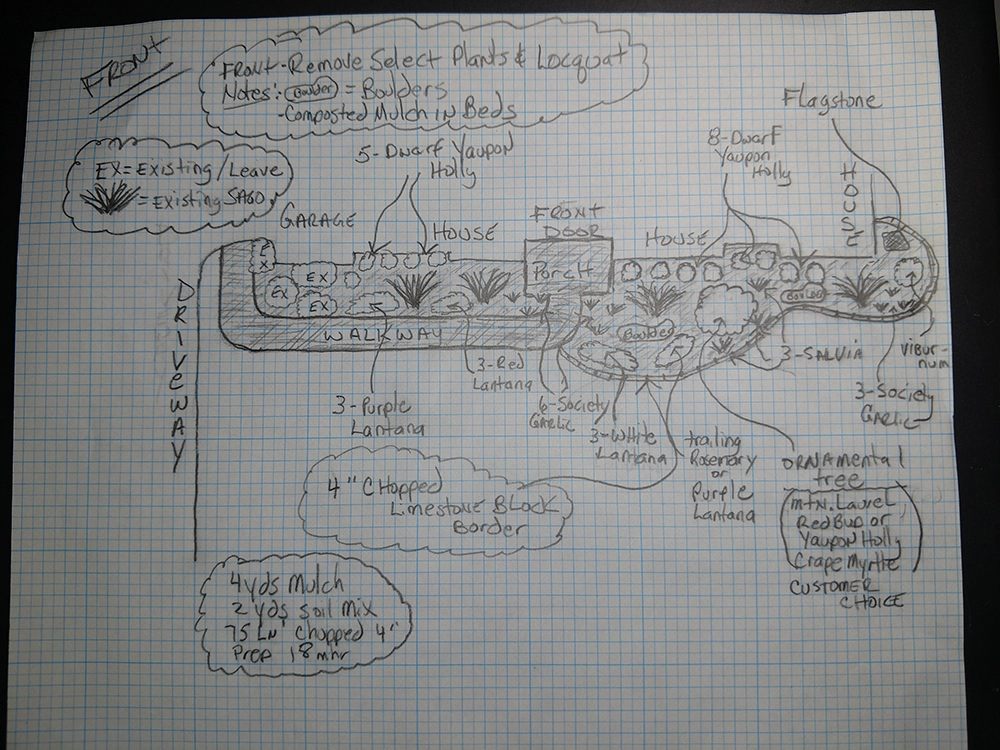 FRONT
FRONT-Remove Select Plants & Locquat
Notes: Boulder = Boulders
-Composted Mulch in Beds
EX=Existing/Leave
=Existing SAGO
5-Dwarf Yaupon
Holly
8-Dwarf
Yaupon
Holly
Flagstone
GARAGE
HOUSE
FRONT
DOOR
Porch
HOUSE
HOUSE
EX
EX
EX
EX
Boulder
Boulder
WALKWAY
DRIVEWAY
3-Purple
Lantana
3-Red
Lantana
6-Society
Garlic
3-White
Lantana
trailing
Rosemary
or
Purple
Lantana
3-SALVIA
Vibur-
num
3-Society
Garlic
ORNAmental
tree
mtn. Laurel,
Red Bud or
Yaupon Holly
Crape Myrtle
CUSTOMER
CHOICE
4" CHopped
Limestone Block
Border
4yds Mulch
2 yds soil mix
75 LN' Chopped 4"
Prep 18mhr